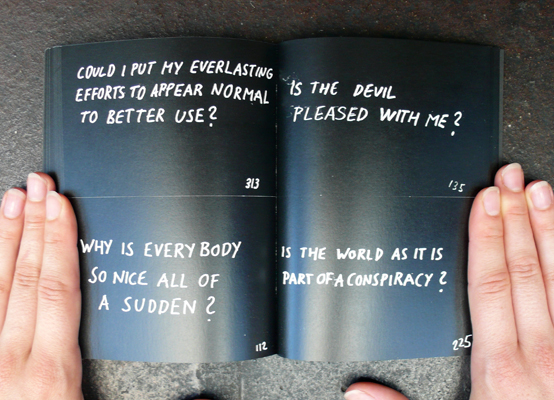 COULD I PUT MY EVERLASTING
EFFORTS TO APPEAR NORMAL
TO BETTER USE?
313
WHY IS EVERYBODY
SO NICE ALL OF
A SUDDEN?
112
IS THE DEVIL
PLEASED WITH ME?
135
IS THE WORLD AS IT IS
PART OF A CONSPIRACY?
225